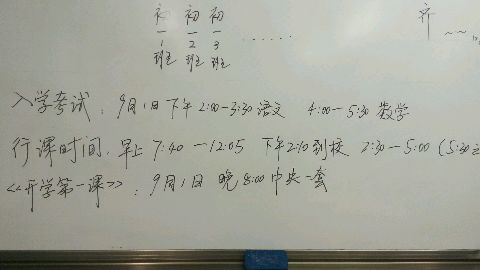 初一1班 初一2班 初一3班 …… 齐~~
入学考试：9月1日下午2:00—3:30语文 4:00—5:30数学
行课时间：早上7:40—12:05 下午2:10到校 2:30—5:00（5:30
《开学第一课》：9月1日 晚8:00中央一套